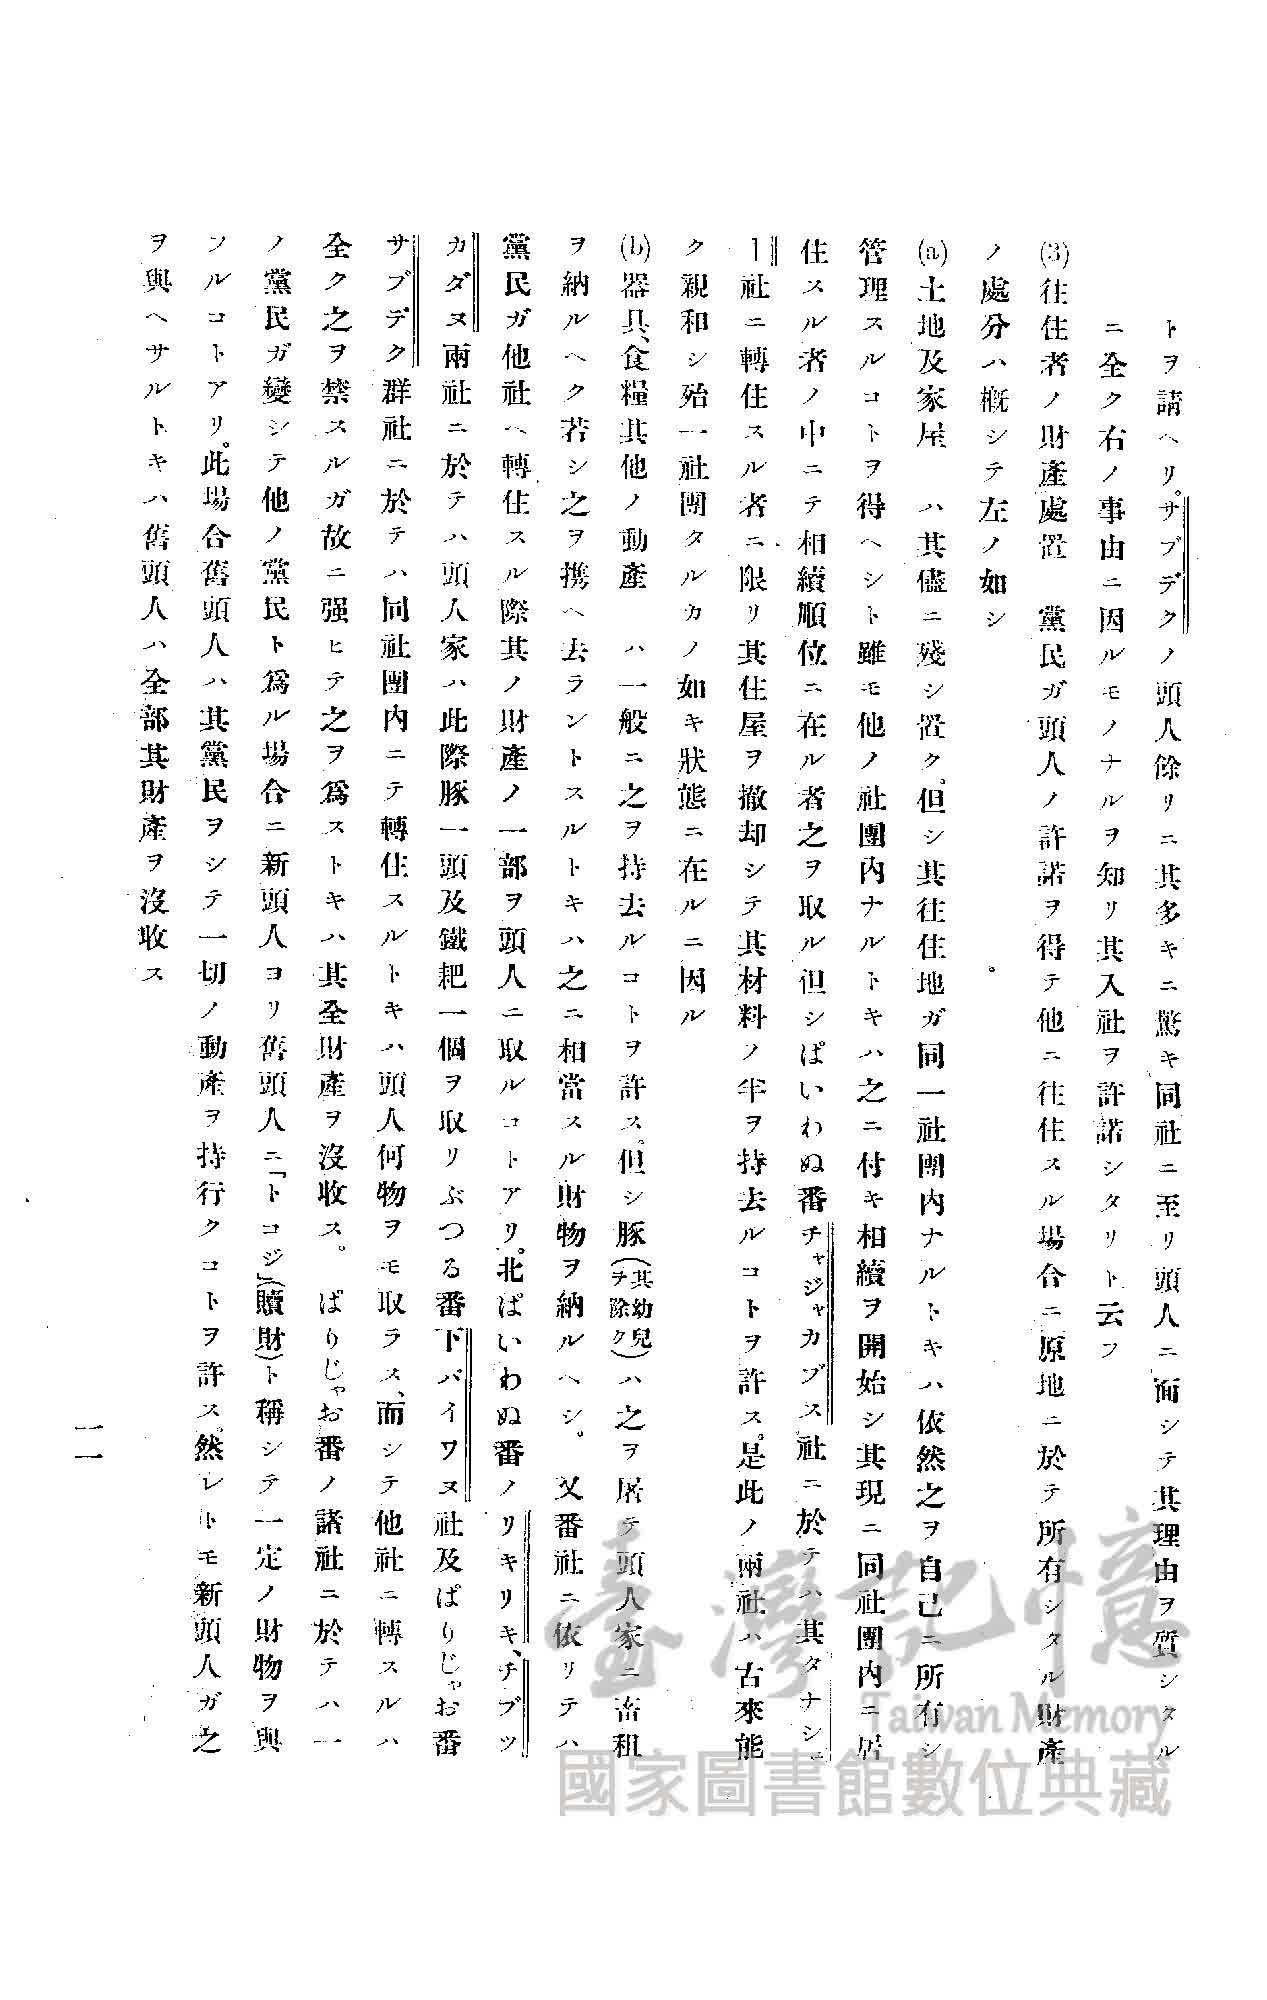 トヲ請ヘリ。サブデクノ頭人餘リニ其多キニ驚キ同社ニ至リ頭人ニ面シテ其理由ヲ質シタル
ニ全ク右ノ事由ニ因ルモノナルヲ知リ其入社ヲ許諾シタリト云フ
(3)往住者ノ財產處置　黨民ガ頭人ノ許諾ヲ得テ他ニ往住スル場合ニ原地ニ於テ所有シタル財產
ノ處分ハ概シテ左ノ如シ
(a)土地及家屋　ハ其儘ニ殘シ置ク、但シ其往住地ガ同一社團內ナルトキハ依然之ヲ自己ニ所有シ
管理スルコトヲ得ヘシト雖モ他ノ社團內ナルトキハ之ニ付キ相續ヲ開始シ其現ニ同社團內ニ居
住スル者ノ中ニテ相續順位ニ在ル者之ヲ取ル但シぱいわぬ番チャジャカブス社ニ於テハ其タナシュ
ー社ニ轉住スル者ニ限リ其住屋ヲ撤却シテ其材料ノ半ヲ持去ルコトヲ許ス。是此ノ兩社ハ古來能
ク親和シ殆一社團タルカノ如キ狀態ニ在ルニ因ル
(b)器具、食糧其他ノ動產　ハ一般ニ之ヲ持去ルコトヲ許ス。但シ豚(其幼兒ヲ除ク)ハ之ヲ屠テ頭人家ニ畜租
ヲ納ルヘク若シ之ヲ携ヘ去ラントスルトキハ之ニ相當スル財物ヲ納ルヘシ。又番社ニ依リテハ
黨民ガ他社ヘ轉住スル際其ノ財產ノ一部ヲ頭人ニ取ルコトアリ。北ぱいわぬ番ノリキリキ、チブツ
カダヌ兩社ニ於テハ頭人家ハ此際豚一頭及鐵耙一個ヲ取リぷつる番下バイワヌ社及ぱりじゃお番
サブデク群社ニ於テハ同社團內ニテ轉住スルトキハ頭人何物ヲモ取ラス、而シテ他社ニ轉スルハ
全ク之ヲ禁スルガ故ニ强ヒテ之ヲ爲ストキハ其全財產ヲ沒收ス。ぱりじゃお番ノ諸社ニ於テハ一
ノ黨民ガ變シテ他ノ黨民ト爲ル場合ニ新頭人ヨリ舊頭人ニ「トコジ」(贖財)ト稱シテ一定ノ財物ヲ與
フルコトアリ。此場合舊頭人ハ其黨民ヲシテ一切ノ動產ヲ持行クコトヲ許ス。然レトモ新頭人ガ之
ヲ與ヘサルトキハ舊頭人ハ全部其財產ヲ沒收ス
一一
臺灣記憶
Taiwan Memory
國家圖書館數位典藏